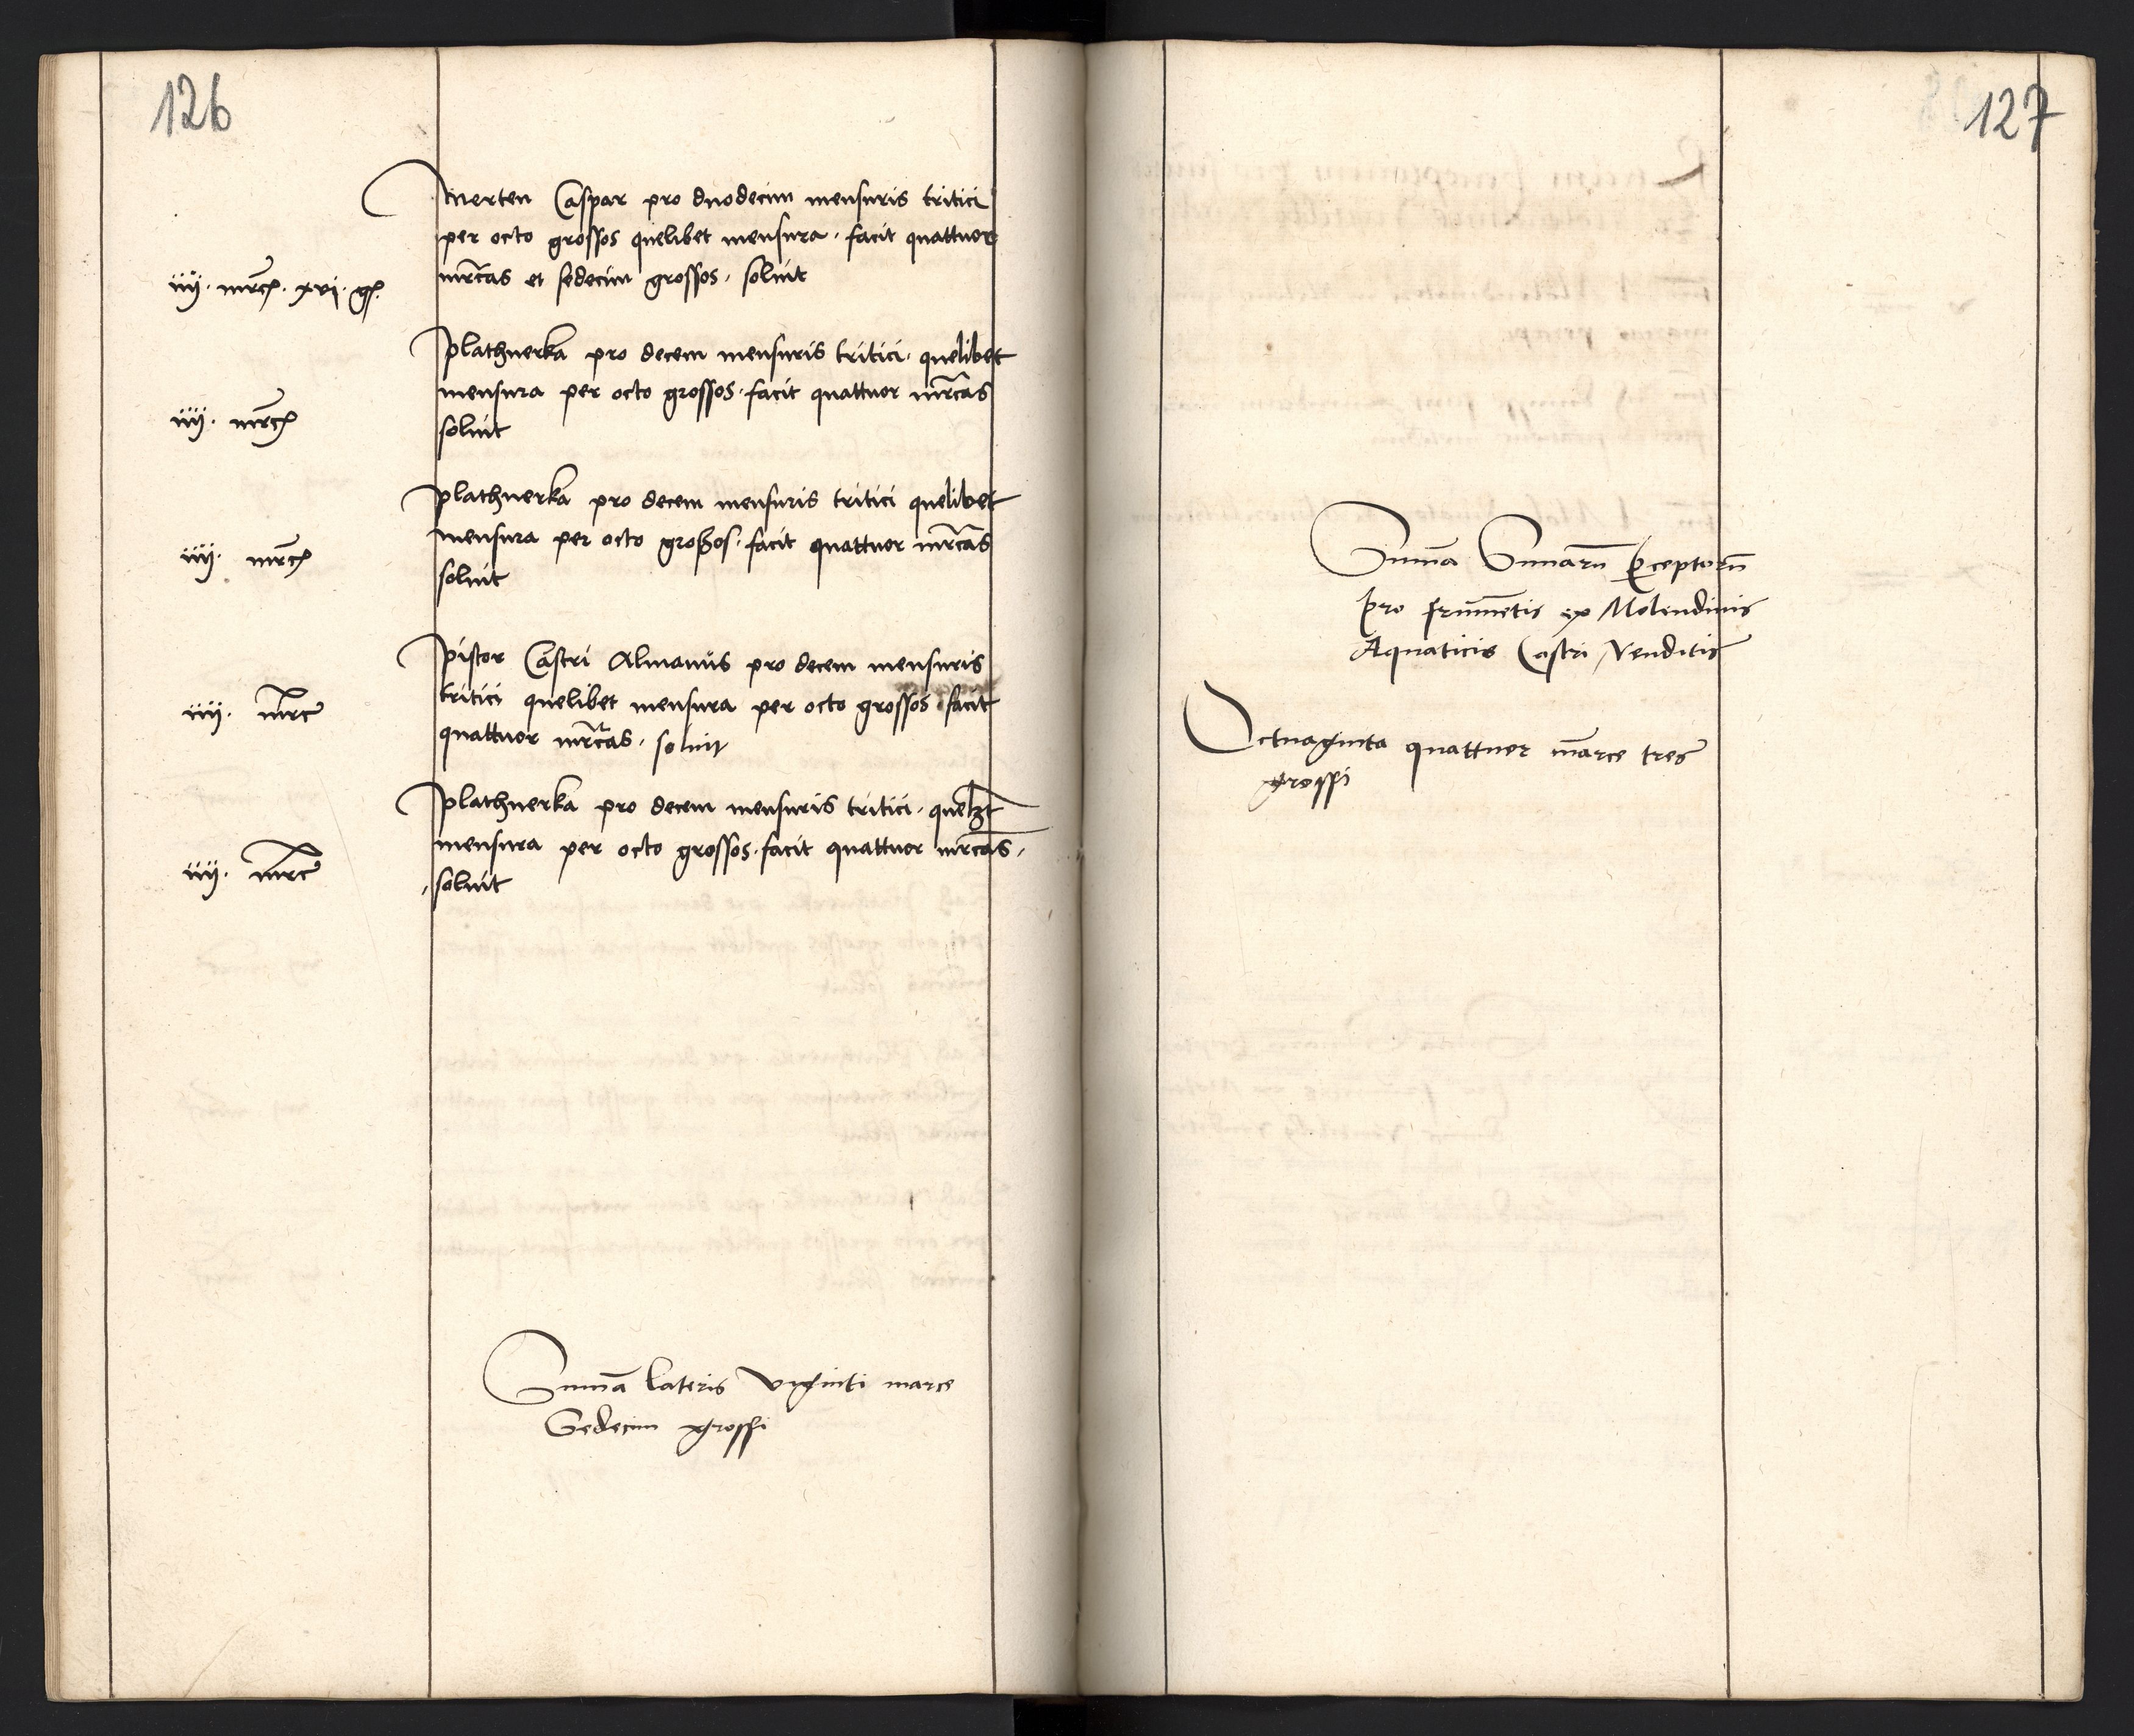 126
Merten Caspar pro duodecim mensuris tritici
per octo grossos quelibet mensura · facit quattuor
iiij · mrc͂ · xvi · g͂ · mrc͂as et sedecim grossos · soluit
plathnerka pro decem mensuris tritici · quelibet
mensura per octo grossos · facit quattuor mrc͂as
iiij · mrc͂ soluit
plathnerka pro decem mensuris tritici quelibet
mensura per octo großos · facit quattuor mrc͂as
iiij · mrc͂ soluit
pistor Castri Almanus pro decem mensuris
tritici quelibet mensura per octo grossos · facit
iiij · mrc͂ quattuor mrc͂as · soluit
plathnerka pro decem mensuris tritici · quelzt
mensura per octo grossos · facit quattuor mrc͂as ·
iiij · mrc͂ · soluit
Sum̄a lateris viginti marce
Sedecim grossi
127
Sum̄a Sum̄arū ꝑceptorū
pro frum̄etis ex Molendinis
Aquaticis Castri Venditis
Octuaginta quattuor m̄arce tres
grossi